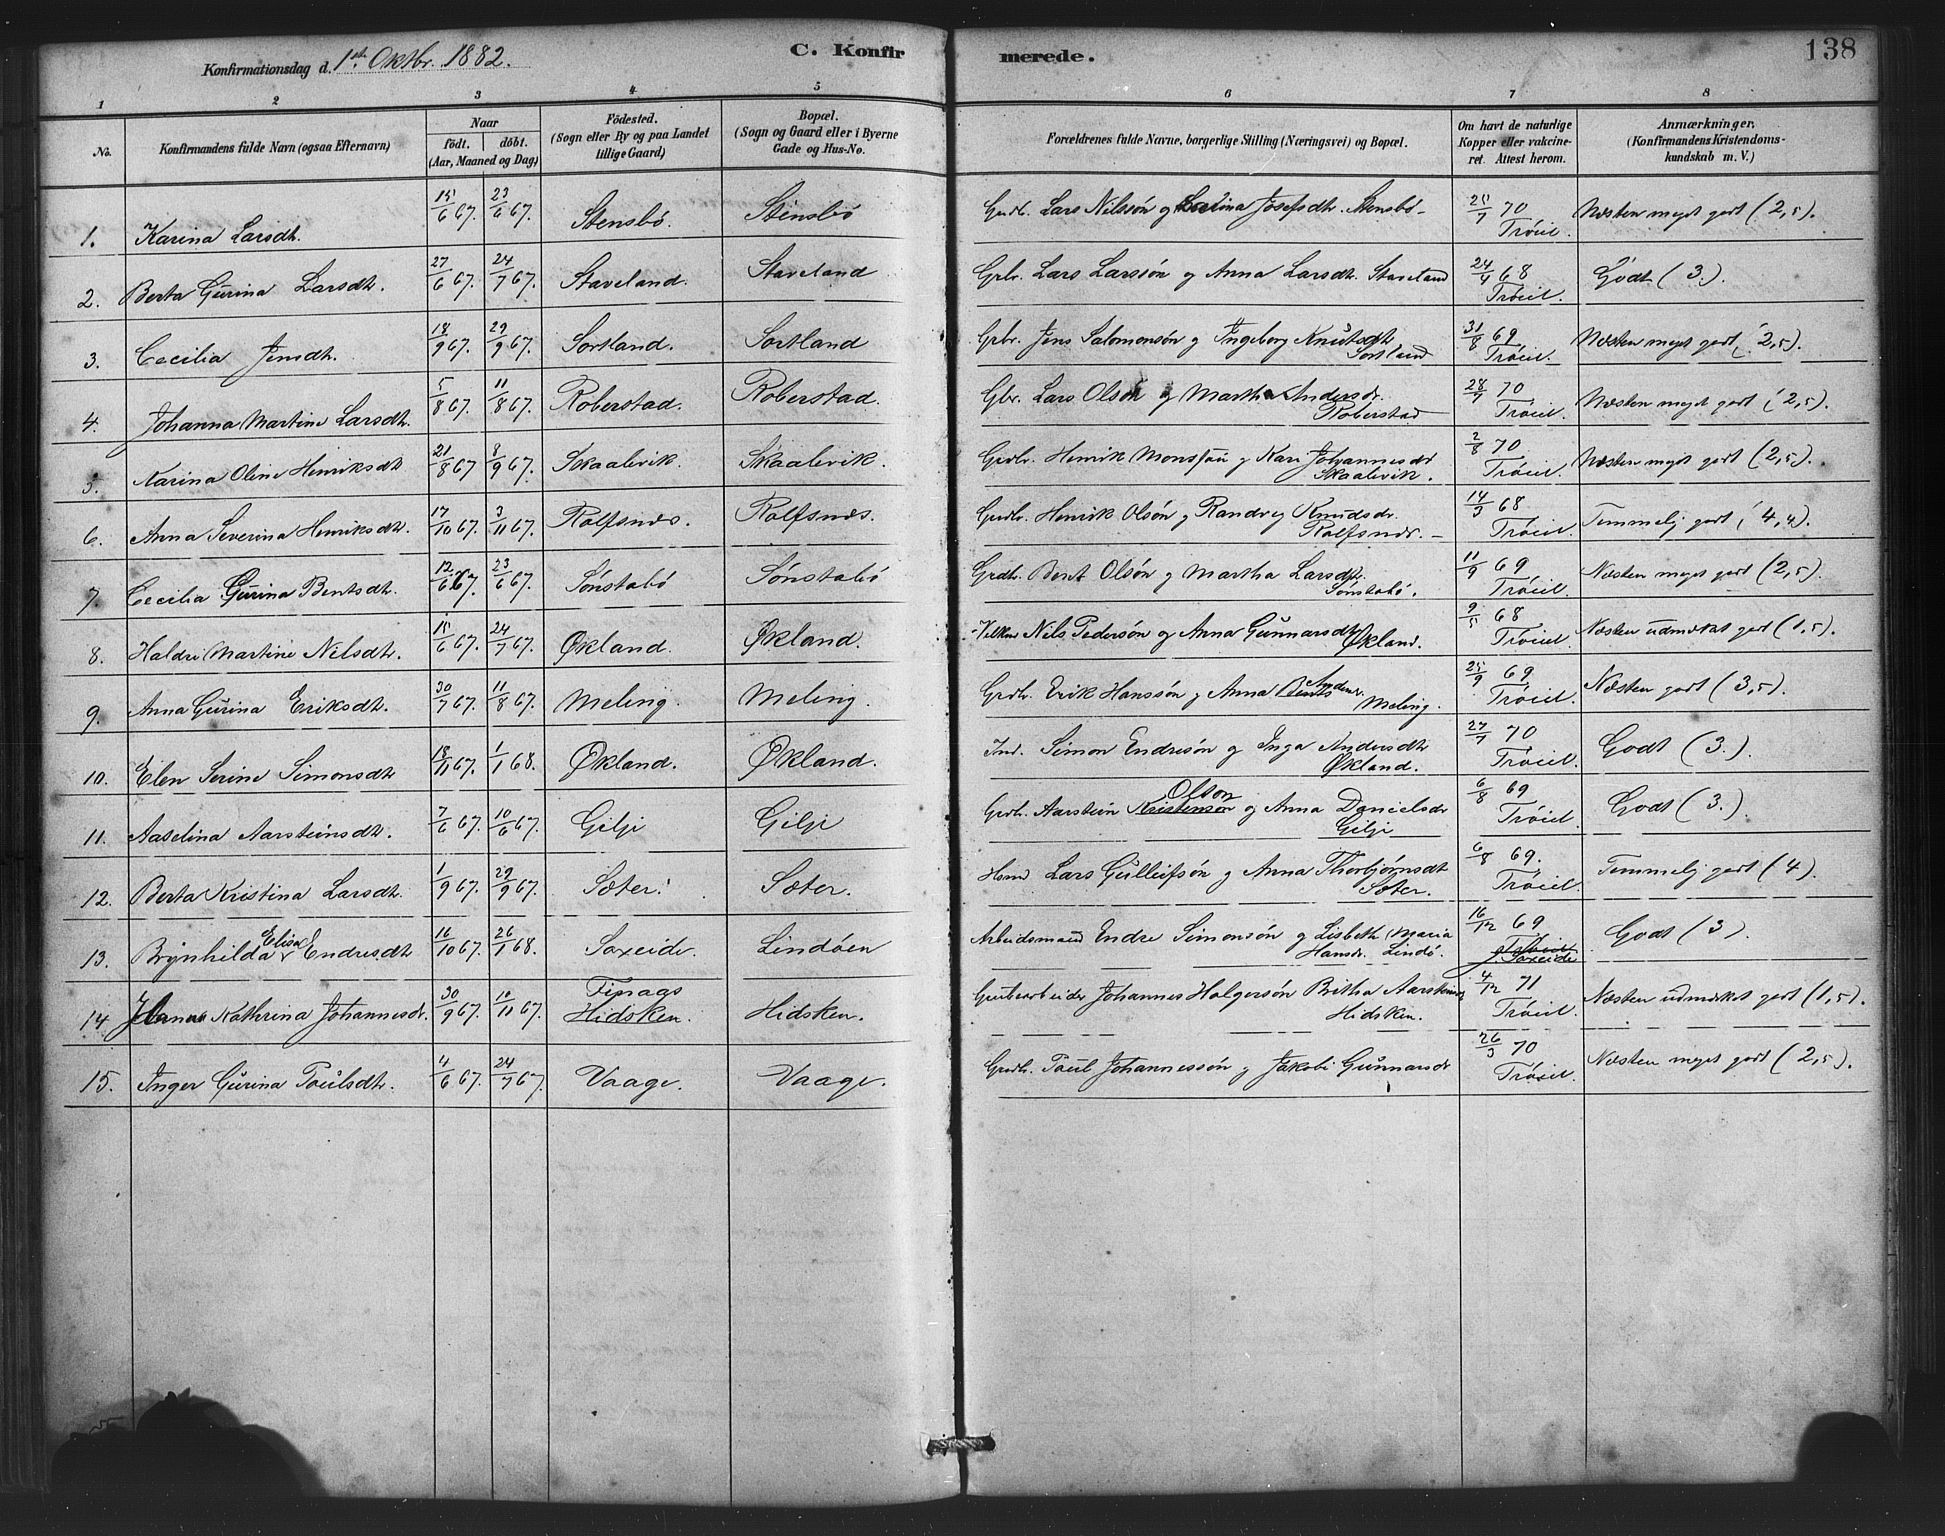 Konfirmationsdag d. 1ste Oktbr. 1882.
C. Konfirmerede.
138
1 2 3 4 5 6 7 8
No.
Konfirmandens fulde Navn (ogsaa Efternavn)
Naar
födt. döbt.
(Aar, Maaned og Dag)
Födested.
(Sogn eller By og paa Landet
tillige Gaard)
Bopæl.
(Sogn og Gaard eller i Byerne
Gade og Hus-No.
Forældrenes fulde Navne, borgerlige Stilling (Næringsvei) og Bopæl.
Om havt de naturlige
Kopper eller vakcine-
ret. Attest herom.
Anmærkninger.
(Konfirmandens Kristendoms-
kundskab m. V.)
1. Karina Larsdt. 15/6 67. 23/6 67. Stensbö. Stensbö Grdb. Lars Nilssön og Josefsdtr. Stensbö 25/7 70 Næsten meget godt (2,5).
Tröill.
2. Berta Gurina Larsdt. 27/6 67. 24/7 67. Staveland. Staveland Grbr. Lars Larssön og Anna Larsdt. Staveland 24/4 68 Godt (3.)
Tröill.
3. Cecilia Jensdt. 18/9 67. 29/9 67. Sortland. Sortland Grbr. Jens Salomonsön og Ingeborg Knutsdt. 31/8 69 Næsten meget godt (2,5).
Sortland Tröill.
4. Johanna Martine Larsdt. 5/8 67. 11/8 67. Roberstad. Roberstad. Gbr. Lars Olsön og Martha Andersdr. 28/7 70 Næsten meget godt (2,5).
Roberstad Tröill.
5. Karina Oline Henriksdt. 21/8 67 8/9 67. Skaalevik. Skaalevik. Grdb. Henrik Monssön og Kari Johannesdr. 2/8 70 Næsten meget godt (2,5)
Skaalevik. Tröill.
6. Anna Severina Henriksdt. 17/10 67. 3/11 67. Rolfsnæs. Rolfsnæs. Grdb. Henrik Olsön og Randvei Knudsdr. 14/3 68 Temmelig godt (4,4)
Rolfsnæs. Tröill.
7. Cecilia Gurina Bentsdt. 12/6 67. 23/6 67. Sönstabö Sönstabö Grdb. Bent Olsön og Martha Larsdt. 11/9 69 Næsten meget godt (2,5)
Sönstabö. Tröill.
8. Haldri Martine Nilsdt. 15/6 67. 24/7 67. Økland. Økland. Nils Pedersön og Anna Gunnarsdtr 9/5 68 Næsten udmærket godt (1,5).
Økland. Tröill.
9. Anna Gurina Eriksdt. 30/7 67. 11/8 67. Meling. Meling. Grdb. Erik Hanssön og Anna Anders. 25/9 69 Næsten godt (3,5)
Meling. Tröill.
10. Elen Serine Simonsdt. 18/11 67. 1/1 68. Økland. Økland. Ind. Simon Endresön og Inga Andersdtr 27/7 70 Godt (3.)
Økland. Tröill.
11. Aaselina Aarsteinsdt. 7/6 67. 10/6 67. Gilje Gilje Grdb. Aarstein Kristensön Olson og Anna Danielsdr 6/8 69 Godt (3.)
Gilje Tröill.
12. Berta Kristina Larsdt. 1/9 67. 29/9 67. Sæter. Sæter. Hsmd Lars Gulleifsön og Anna Thorbjörnsdt 6/8 69. Temmelig godt (4)
Sæter. Tröill.
13. Brynhilda Elisa Endresdt 16/10 67. 26/1 68. Saxeide. Lindöen Arbeidsmand Endre Simonsön og Lisbeth Maria 16/12 69 Godt (3)
Hansdr. Lindö.
14. Kathrina Johannesdr. 30/9 67. 10/11 67. Hidsken. Hidsken. Grubearbeider Johannes Holgersön Britha Aarsteins 4/12 71 Næsten udmærket godt (1,5).
Hidsken. Tröill.
15. Inger Gurina Poulsdt. 4/6 67. 24/7 67. Vaage. Vaage. Grdb. Poul Johannessön og Jakobi Gunnarsdr 26/3 70 Næsten meget godt (2,5)
Tröill.